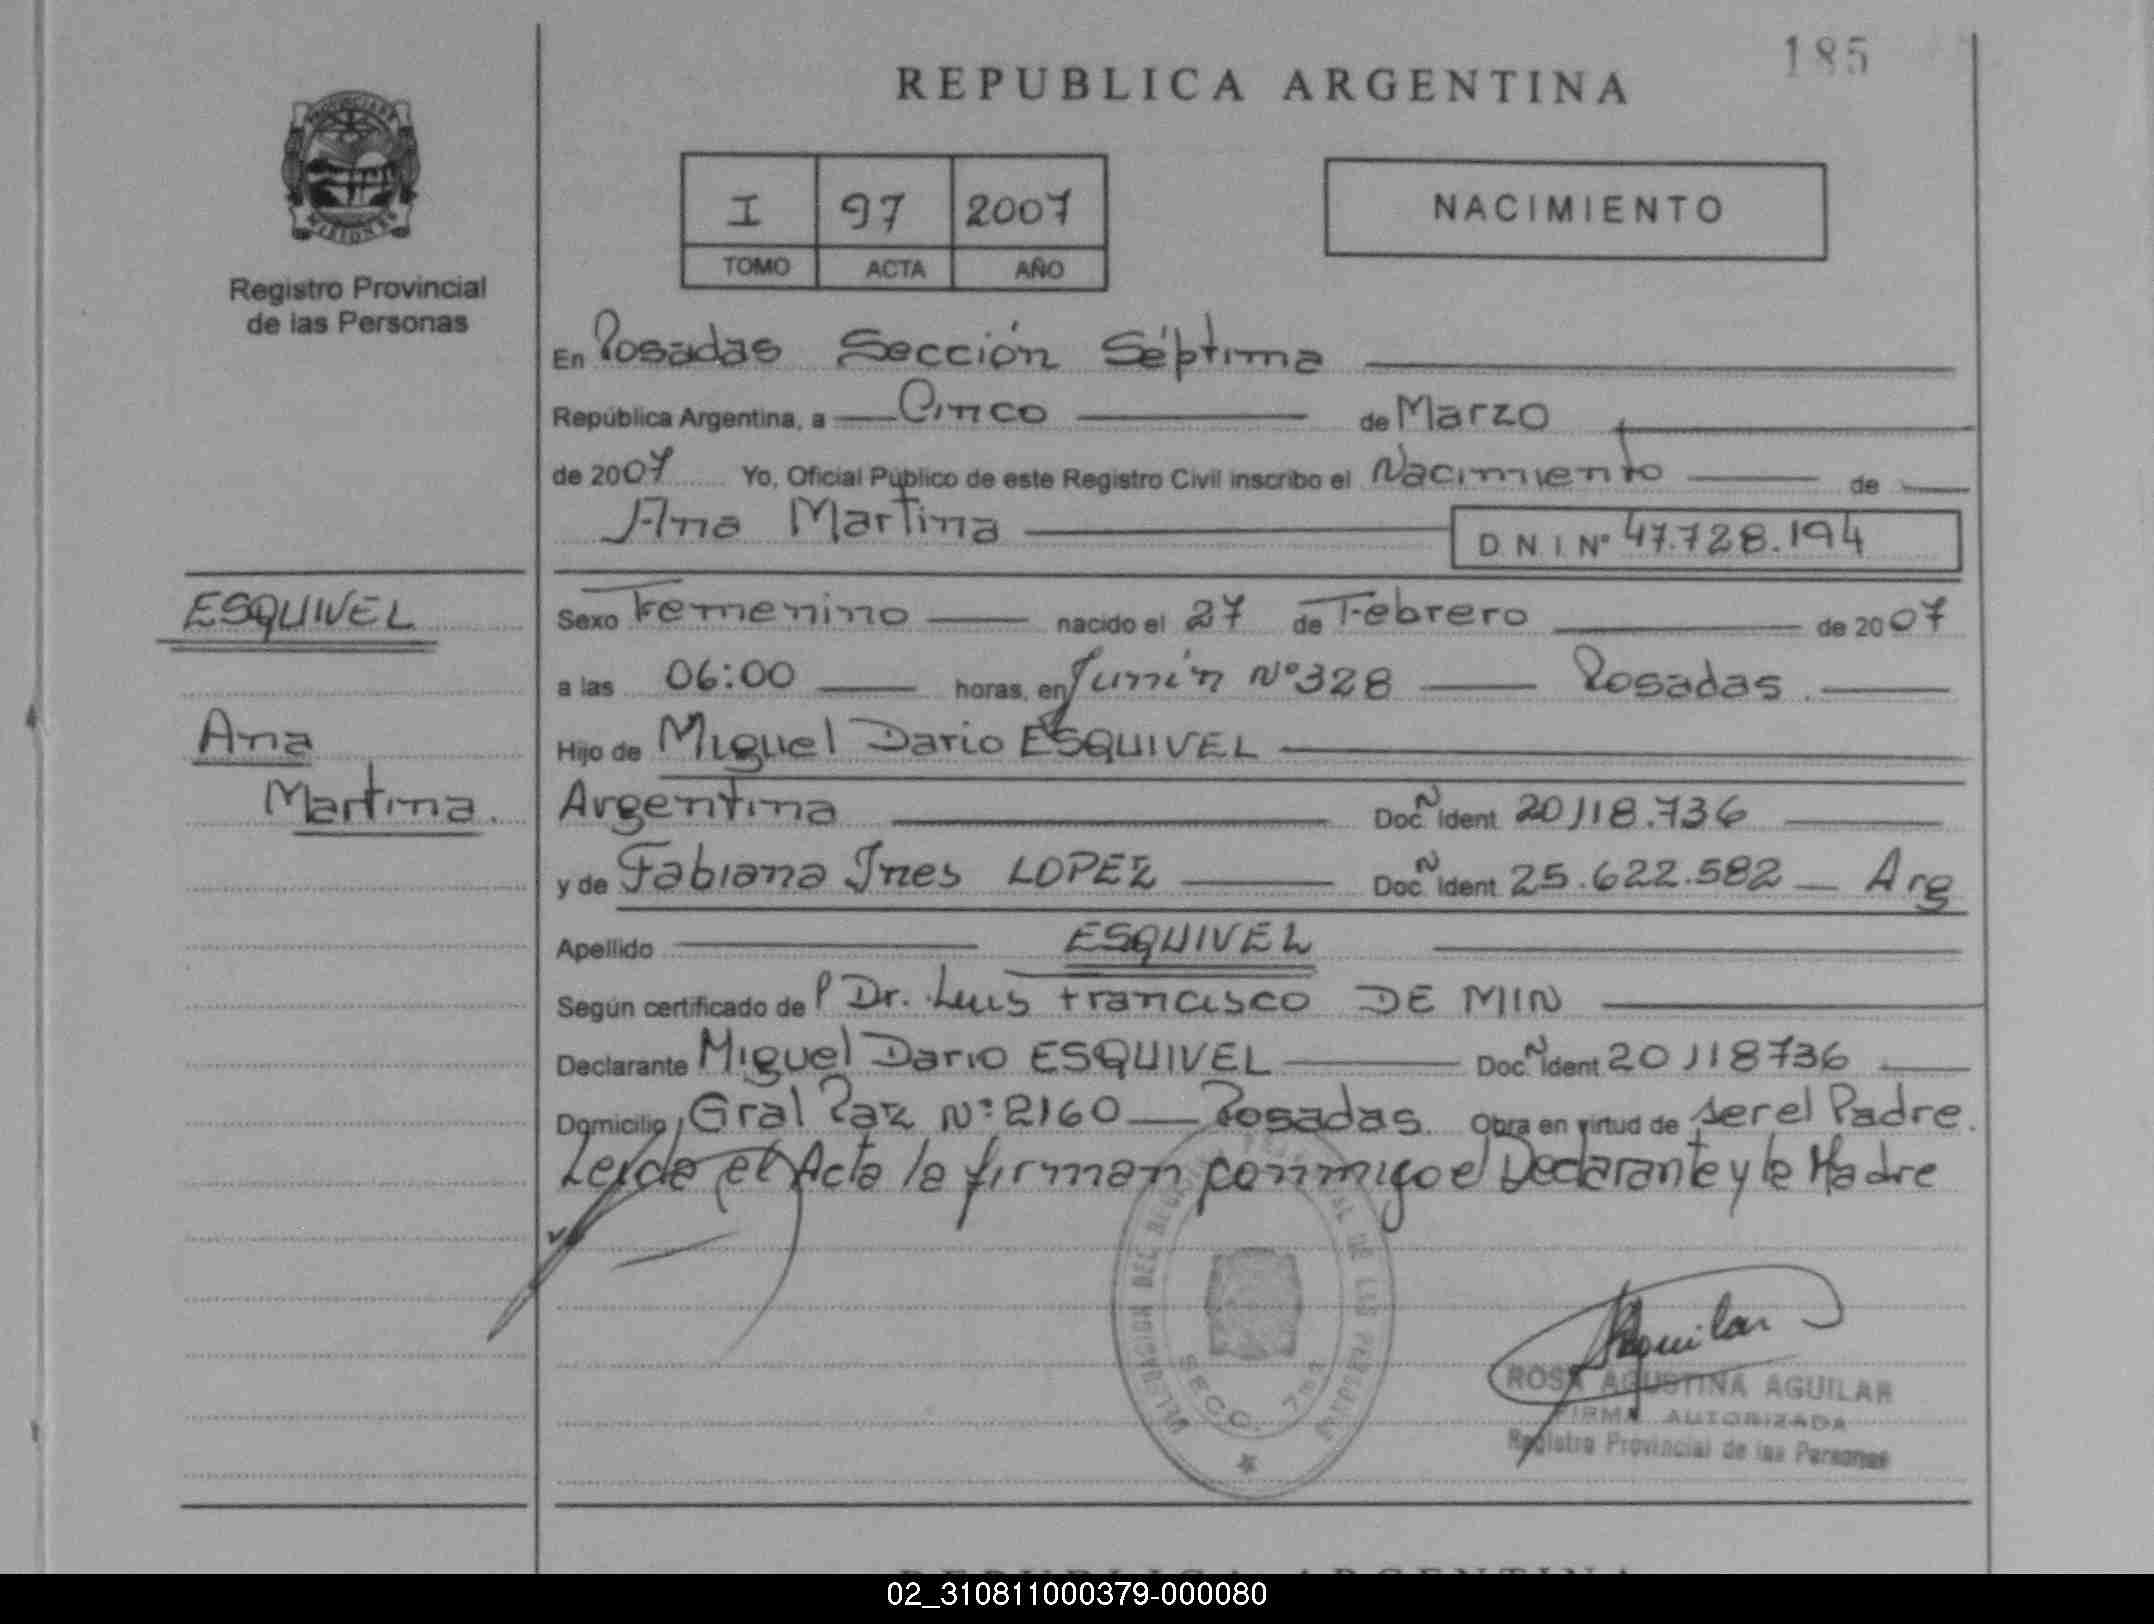 185
REPUBLICA ARGENTINA
I 97 2007
TOMO ACTA AÑO
NACIMIENTO
Registro Provincial
de las Personas
En Posadas Sección Séptima
República Argentina, a Cinco de Marzo
de 2007 Yo, Oficial Público de este Registro Civil inscribo el Nacimiento de
Ana Martina D.N.I. Nº 47.728.194
ESQUIVEL
Ana
Martina.
Sexo Femenino nacido el 27 de Febrero de 2007
a las 06:00 horas, en Junín Nº 328 Posadas.
Hijo de Miguel Dario ESQUIVEL
Argentina Doc. N Ident 20118.736
y de Fabiana Ines LOPEZ Doc. N Ident 25.622.582 Arg
Apellido ESQUIVEL
Según certificado de P Dr. Luis Francisco DE MIN
Declarante Miguel Dario ESQUIVEL Doc. N Ident 20118736
Domicilio Gral Paz Nº 2160 Posadas. Obra en virtud de ser el Padre.
Leida el Acta la firman conmigo el Declarante y la Madre
DEL REGISTRO PROVINCIAL DE LAS PERSONAS
SECC. 7ma
Aguilar
ROSA AGUSTINA AGUILAR
FIRMA AUTORIZADA
Registro Provincial de las Personas
REPUBLICA ARGENTINA
02_310811000379-000080